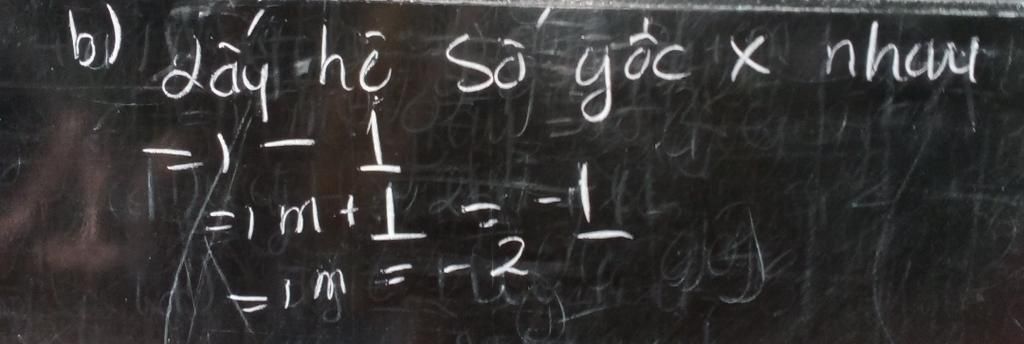 b) Lấy hệ số góc x nhau
=) - 1
=) m + 1 = -1
=) m = -2